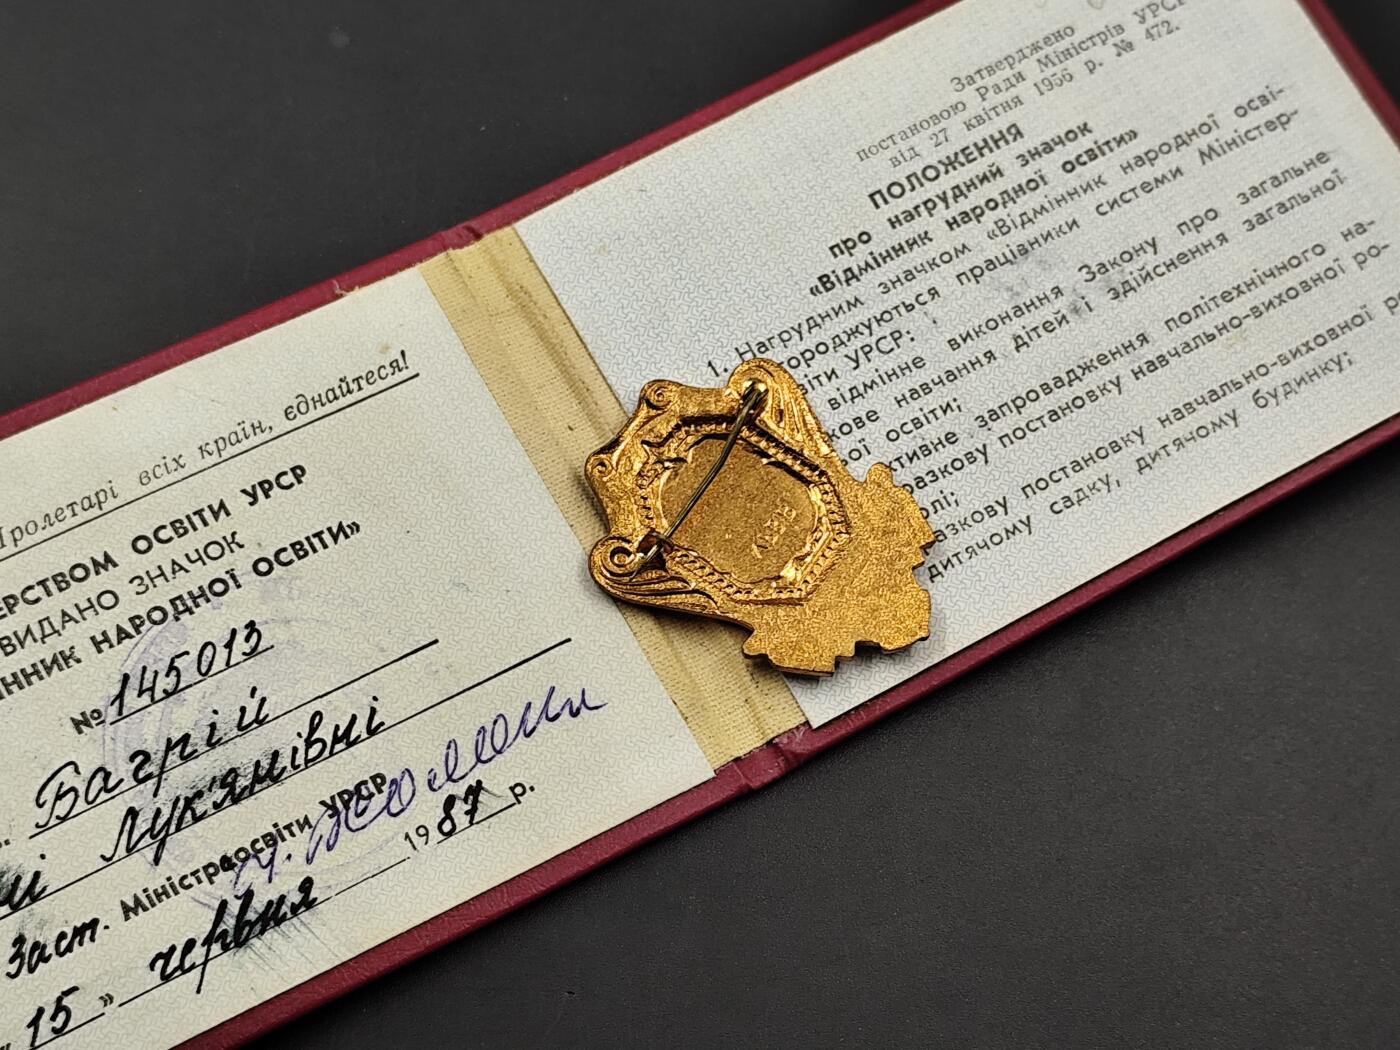 Пролетарі всіх країн, єднайтеся!
ЕРСТВОМ ОСВІТИ УРСР
ВИДАНО ЗНАЧОК
ІННИК НАРОДНОЇ ОСВІТИ»
№ 145013
Багрій
Лук'янівні
Заст. Міністра освіти УРСР
15 » червня 1987 р.
Затверджено
постановою Ради Міністрів УРСР
від 27 квітня 1956 р. № 472.
ПОЛОЖЕННЯ
про нагрудний значок
«Відмінник народної освіти»
1. Нагрудним значком «Відмінник народної осві-
городжуються працівники системи Міністер-
віти УРСР:
відмінне виконання Закону про загальне
кове навчання дітей і здійснення загальної
ої освіти;
ктивне запровадження політехнічного на-
разкову постановку навчально-виховної ро-
олі;
азкову постановку навчально-виховної р
дитячому садку, дитячому будинку;